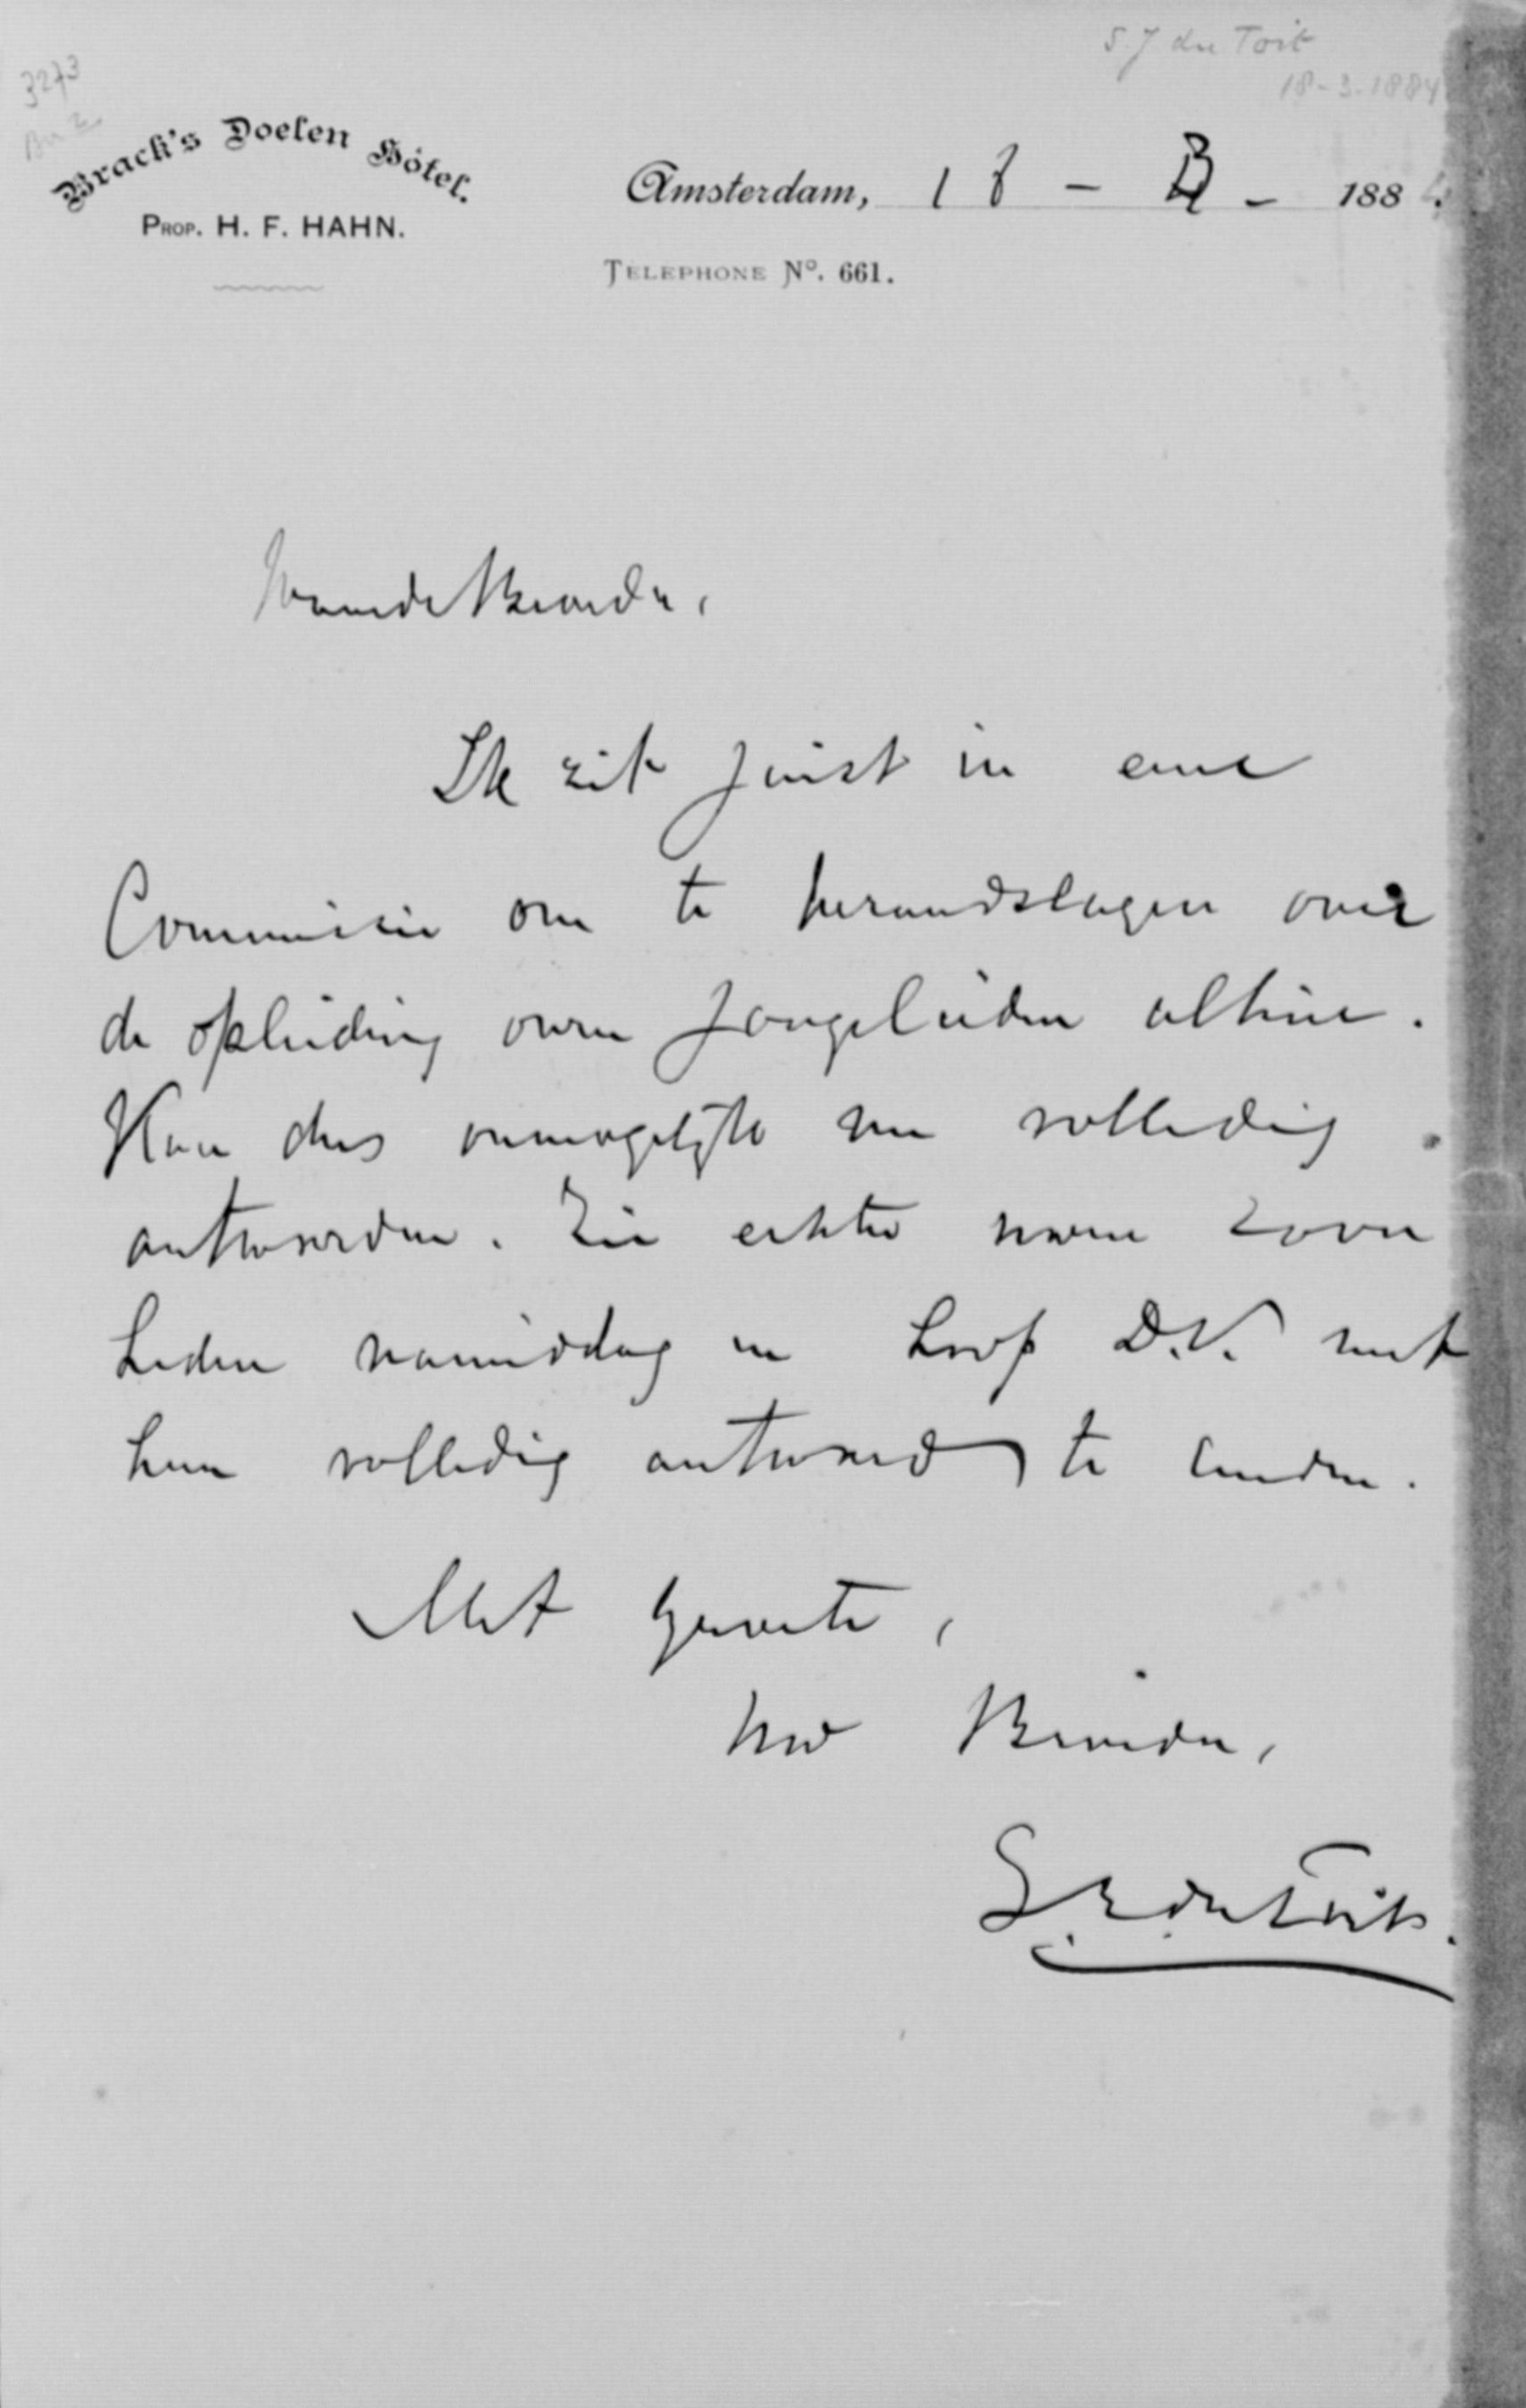 S. J. du Toit
18-3-1884
3273
Brack's Doelen Hôtel.
PROP. H. F. HAHN.
Amsterdam, 18 - 3 - 1884.
TELEPHONE No. 661.
Waarde Broeder,
Ik zit juist in eene
Commissie om te beraadslagen over
de opleiding onzer jongelieden alhier.
Kan dus onmogelijk nu volledig
antwoorden. Zie echter uwen zoon
heden namiddag en hoop D.V. met
hem volledig antwoord te zenden.
Met groete,
Uw Broeder,
S. J. du Toit.